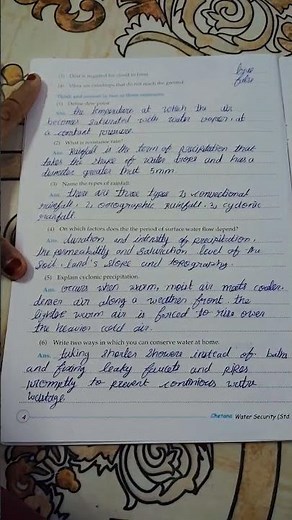 (1) Define dew point.
Ans. the temperature at which the air
becomes saturated with water vapour, at
a constant pressure.
(2) What is
Ans. Rainfall is the term of precipitation that
takes the shape of water drops and has a
diameter greater that 5mm.
(3) Name the types of rainfall.
Ans. There are three types 1) convectional
rainfall. 2, orographic rainfall. 3, cyclonic
rainfall
(4) On which factors does the period of surface water flow depend?
Ans. duration and intensity of precipitation,
the permeability and saturation level of the
soil, land's slope and topography.
(5) Explain cyclonic precipitation.
Ans. occurs when warm, moist air meets cooler
denser air along a weather front. the
lighter warm air is forced to rise over
the heavier cold air.
(6) Write two ways in which you can conserve water at home.
Ans. taking shorter showers instead of
and fixing leaky faucets and pipes
promptly to prevent continuous water
wastage.
4
Chetana Water Security (Std